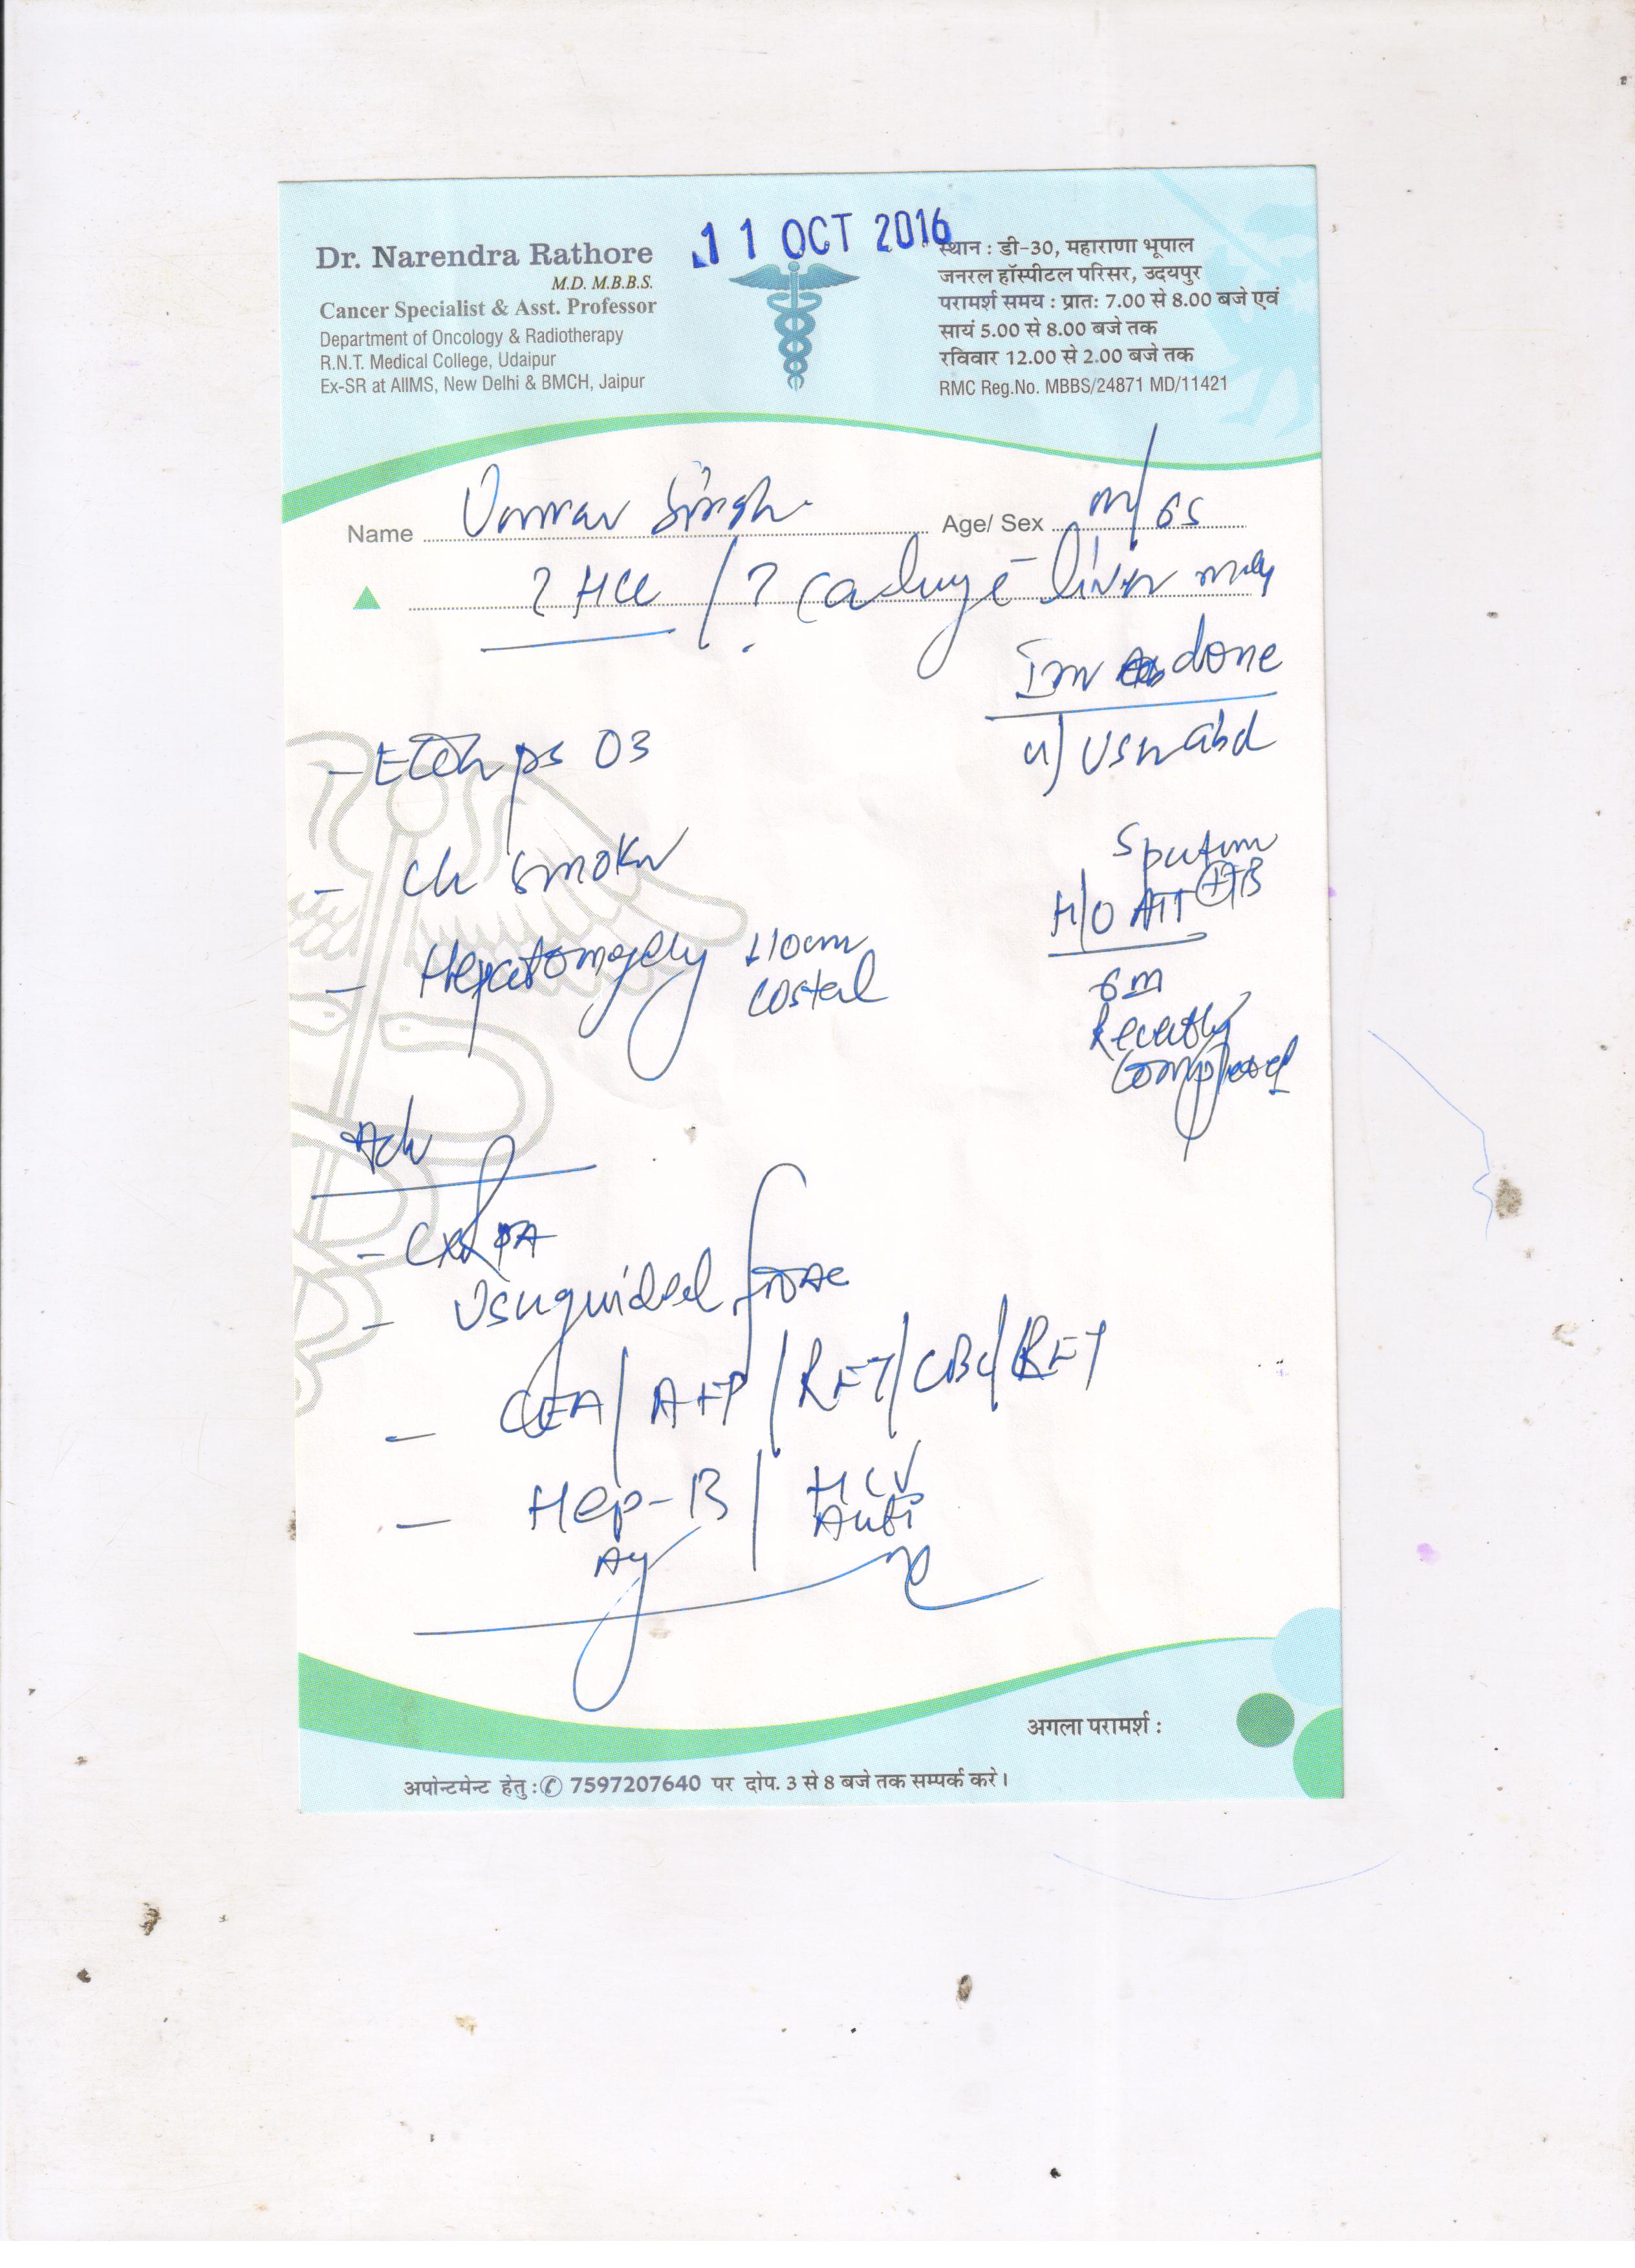 Dr. Narendra Rathore
M.D. M.B.B.S.
Cancer Specialist & Asst. Professor
Department of Oncology & Radiotherapy
R.N.T. Medical College, Udaipur
Ex-SR at AIIMS, New Delhi & BMCH, Jaipur
11 OCT 2016
स्थान : डी-30, महाराणा भूपाल
जनरल हॉस्पीटल परिसर, उदयपुर
परामर्श समय : प्रातः 7.00 से 8.00 बजे एवं
सायं 5.00 से 8.00 बजे तक
रविवार 12.00 से 2.00 बजे तक
RMC Reg.No. MBBS/24871 MD/11421
Name Singh Age/ Sex M/65
? HCC / ? Ca lung c̄ liver
Inv done
u) USG abd
- EtOH PS 03
- Ch smoker
- Hepatomegaly 10cm
costal
Sputum
H/O ATT ⊕ TB
6m
Recently
completed
Adv
- CXR PA
- USG guided FNAC
- CEA/ AFP / RFT/ CBC/
- Hep-B / HCV
Ag Anti
अगला परामर्श :
अपोन्टमेन्ट हेतु : ✆ 7597207640 पर दोप. 3 से 8 बजे तक सम्पर्क करे।